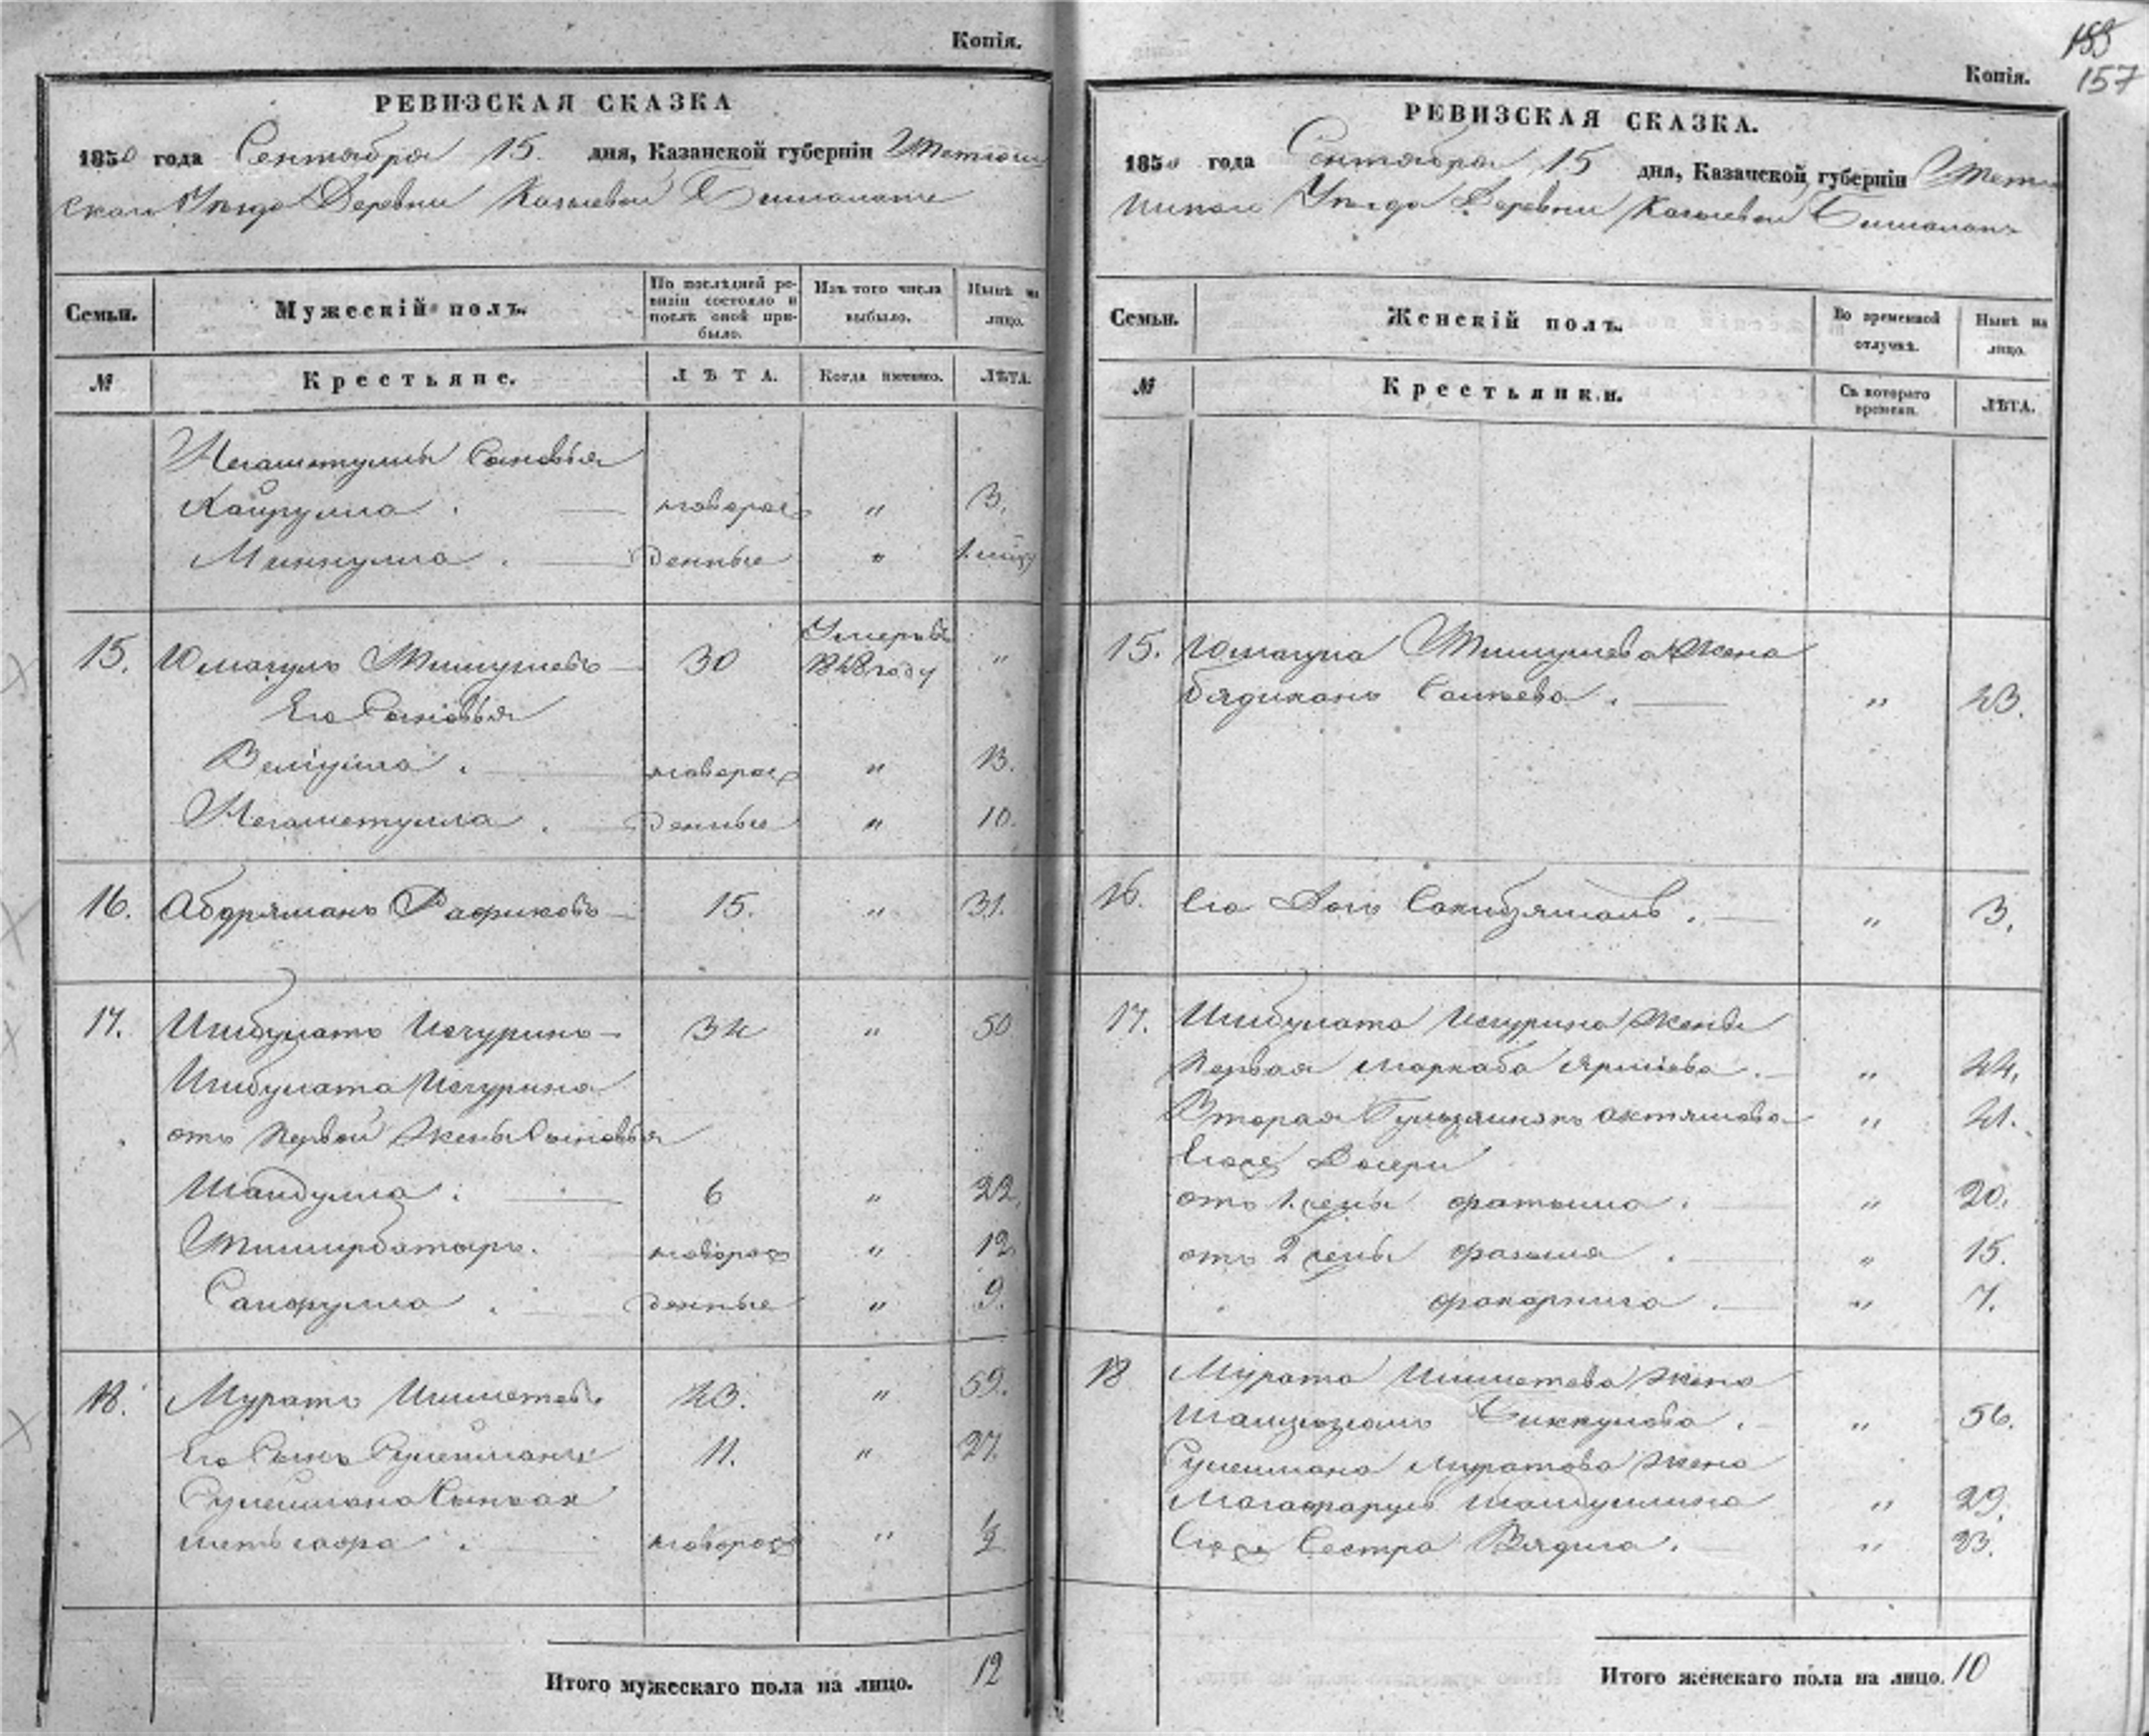 Копія.
РЕВИЗСКАЯ СКАЗКА
1850 года Сентября 15. дня, Казанской губерніи Тетюш
скаго Уѣзда Деревни
Семьи.
Мужескій полъ.
По послѣдней ре-
визіи состояло и
послѣ оной при-
было.
Изъ того числа
выбыло.
Нынѣ на
лицо.
№
Крестьяне.
ЛѢТА.
Когда имянно.
ЛѢТА.
Негаметуллы Сыновья
Хайрулла . новорож " 3.
Миннулла . денные "
15. Юмагулъ Тимушевъ 30 Умеръ въ 1848 году "
Его Сыновья
Велиулла . новорож " 13.
Негаметулла . денные " 10.
16. Абдряманъ Рафиковъ 15. " 31.
17. Ишбулатъ Исчуринъ 34 " 50
Ишбулата Исчурина
отъ первой жены сыновья
Шайдулла . 6 " 22.
Тимирбатыръ. новорож " 12
Сайфулла . денные " 9.
18. Муратъ Ишметевъ. 43. " 59.
Его Сынъ Сулейманъ 11. " 27.
Сулеймана Сынъ Ах
метьгафа . новорож " ½
Итого мужескаго пола на лицо. 12
155
157
Копія.
РЕВИЗСКАЯ СКАЗКА.
1850 года Сентября 15 дня, Казанской губерніи Тетю
Уѣзда Деревни
Семьи.
Женскій полъ.
Во временной
отлучкѣ.
Нынѣ на
лицо.
№
Крестьянки.
Съ котораго
времени.
ЛѢТА.
15. Юмагула Тимушева жена
Бядиханъ Саитева . " 43.
16. Его Дочь Сахибзямалъ . " 3.
17. Ишбулата Исчурина Жены
Первая Маркаба " 44.
Вторая Актяшова " 41.
Его же Дочери
отъ 1. жены Фатыма . " 20.
отъ 2 жены " 15.
" . " 7.
18 Мурата Ишметева жена
Биккулова . " 56.
Сулеймана Муратова жена
Магафаруъ Шайдуллина " 29.
Его же Сестра Вядига . " 23.
Итого женскаго пола на лицо. 10